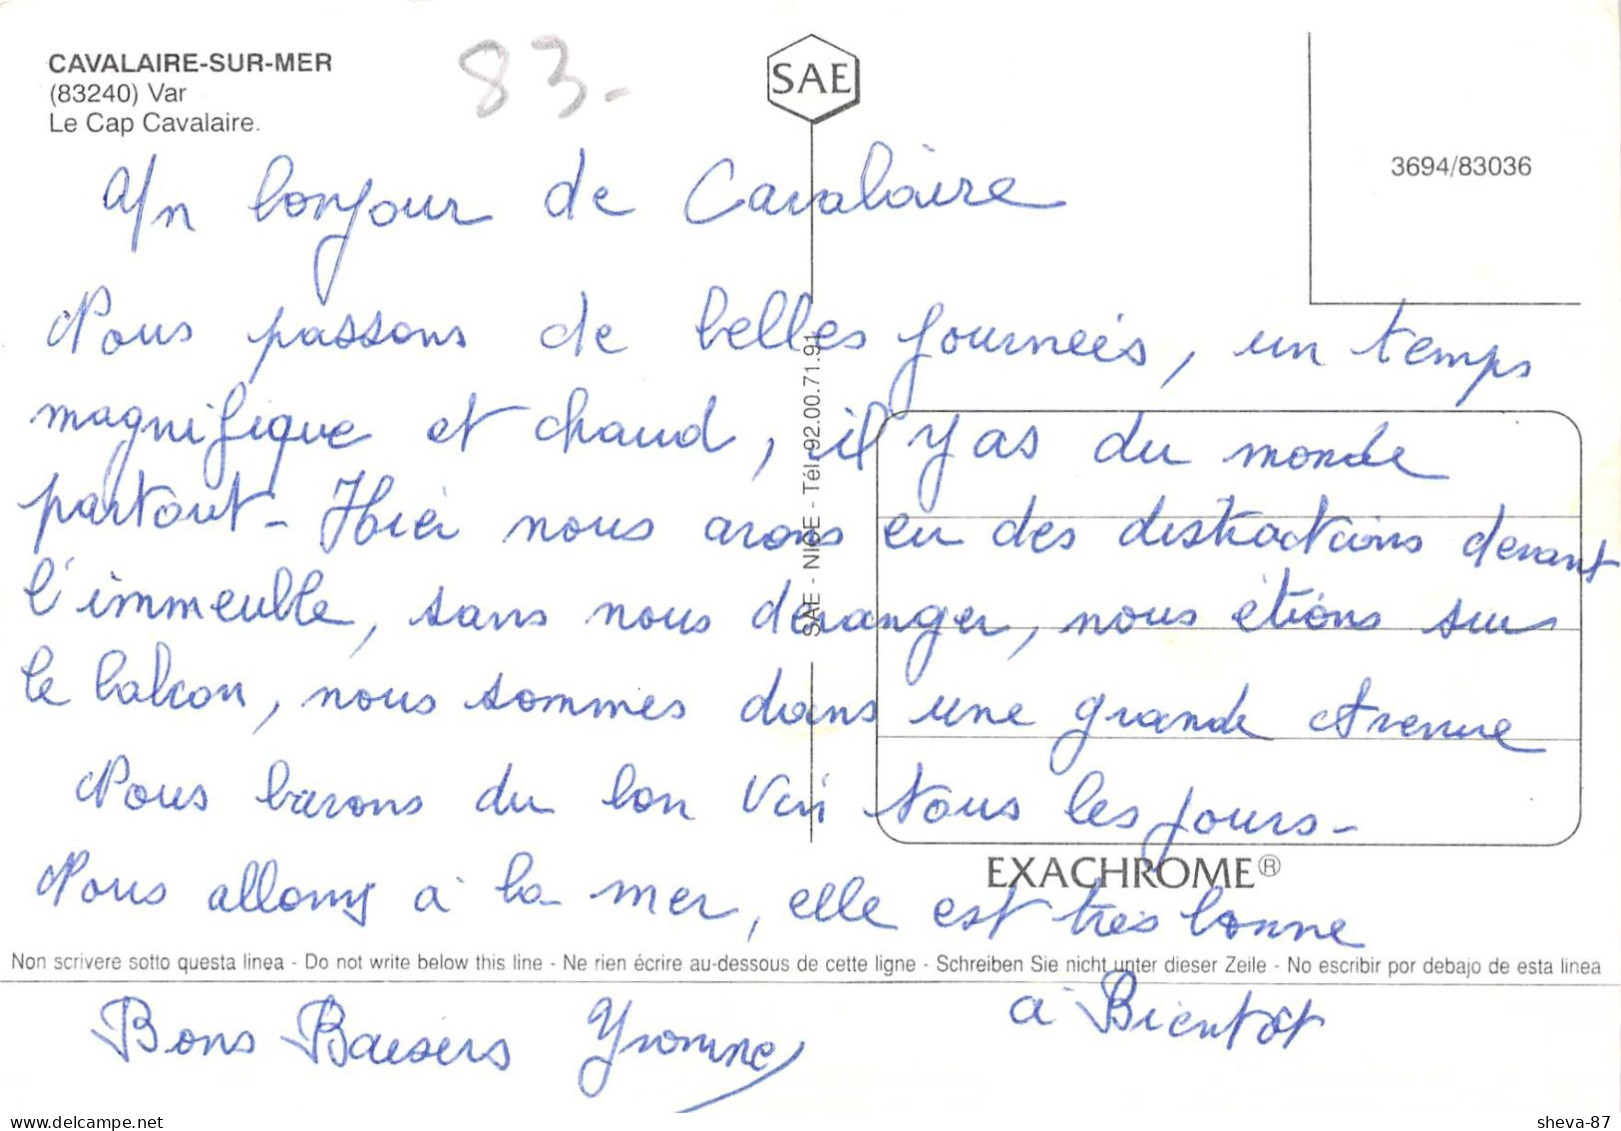 CAVALAIRE-SUR-MER
(83240) Var
Le Cap Cavalaire.
83-
SAE
3694/83036
Un bonjour de Cavalaire
Nous passons de belles journées, un temps
magnifique et chaud, il y as du monde
partout - Hier nous avons eu des distractions devant
l'immeuble, sans nous déranger, nous étions sur
le balcon, nous sommes dans une grande Avenue
Nous buvons du bon Vin tous les jours -
Nous allons à la mer, elle est très bonne
SAE - NICE - Tél. 92.00.71.91
EXACHROME®
Non scrivere sotto questa linea - Do not write below this line - Ne rien écrire au-dessous de cette ligne - Schreiben Sie nicht unter dieser Zeile - No escribir por debajo de esta linea
à Bientôt
Bons Baisers Yvonne
picclick.com
sheva-87